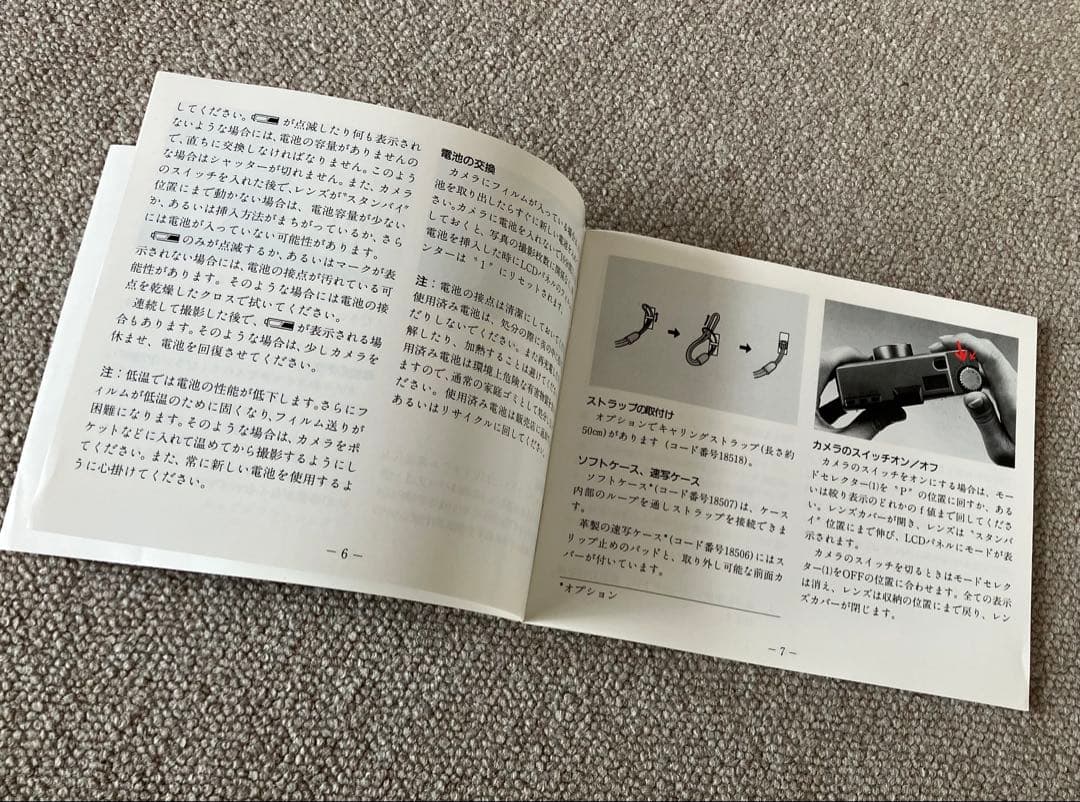 してください。が点滅したり何も表示され
ないような場合には、電池の容量がありませんの
で、直ちに交換しなければなりません。このよう
な場合はシャッターが切れません。また、カメラ
のスイッチを入れた後で、レンズが“スタンバイ”
位置にまで動かない場合は、電池容量が少ない
か、あるいは挿入方法がまちがっているか、さら
には電池が入っていない可能性があります。
のみが点滅するか、あるいはマークが表
示されない場合には、電池の接点が汚れている可
能性があります。そのような場合には電池の接
点を乾燥したクロスで拭いてください。
連続して撮影した後で、が表示される場
合もあります。そのような場合は、少しカメラを
休ませ、電池を回復させてください。
注：低温では電池の性能が低下します。さらにフ
ィルムが低温のために固くなり、フィルム送りが
困難になります。そのような場合は、カメラをポ
ケットなどに入れて温めてから撮影するようにし
てください。また、常に新しい電池を使用するよ
うに心掛けてください。
－6－
電池の交換
カメラにフィルムが入っている場合
池を取り出したらすぐに新しい電池を
さい。カメラに電池を入れないで
しておくと、写真の撮影枚数に関係
電池を挿入した時にLCDパネルの
ンターは“1”にリセットされます。
注：電池の接点は清潔にしておいて
使用済み電池は、処分の際に火の中
だりしないでください。また再充電
解したり、加熱することは避けてくだ
用済み電池は環境上危険な有害物質
ますので、通常の家庭ゴミとして処分
ださい。使用済み電池は販売店に
あるいはリサイクルに回してください。
ストラップの取付け
オプションでキャリングストラップ（長さ約
50cm）があります（コード番号18518）。
ソフトケース、速写ケース
ソフトケース*（コード番号18507）は、ケース
内部のループを通しストラップを接続できま
す。
革製の速写ケース*（コード番号18506）にはス
リップ止めのパッドと、取り外し可能な前面カ
バーが付いています。
*オプション
カメラのスイッチオン／オフ
カメラのスイッチをオンにする場合は、モー
ドセレクター(1)を“P”の位置に回すか、ある
いは絞り表示のどれかのf値まで回してくださ
い。レンズカバーが開き、レンズは“スタンバ
イ”位置にまで伸び、LCDパネルにモードが表
示されます。
カメラのスイッチを切るときはモードセレク
ター(1)をOFFの位置に合わせます。全ての表示
は消え、レンズは収納の位置にまで戻り、レン
ズカバーが閉じます。
－7－